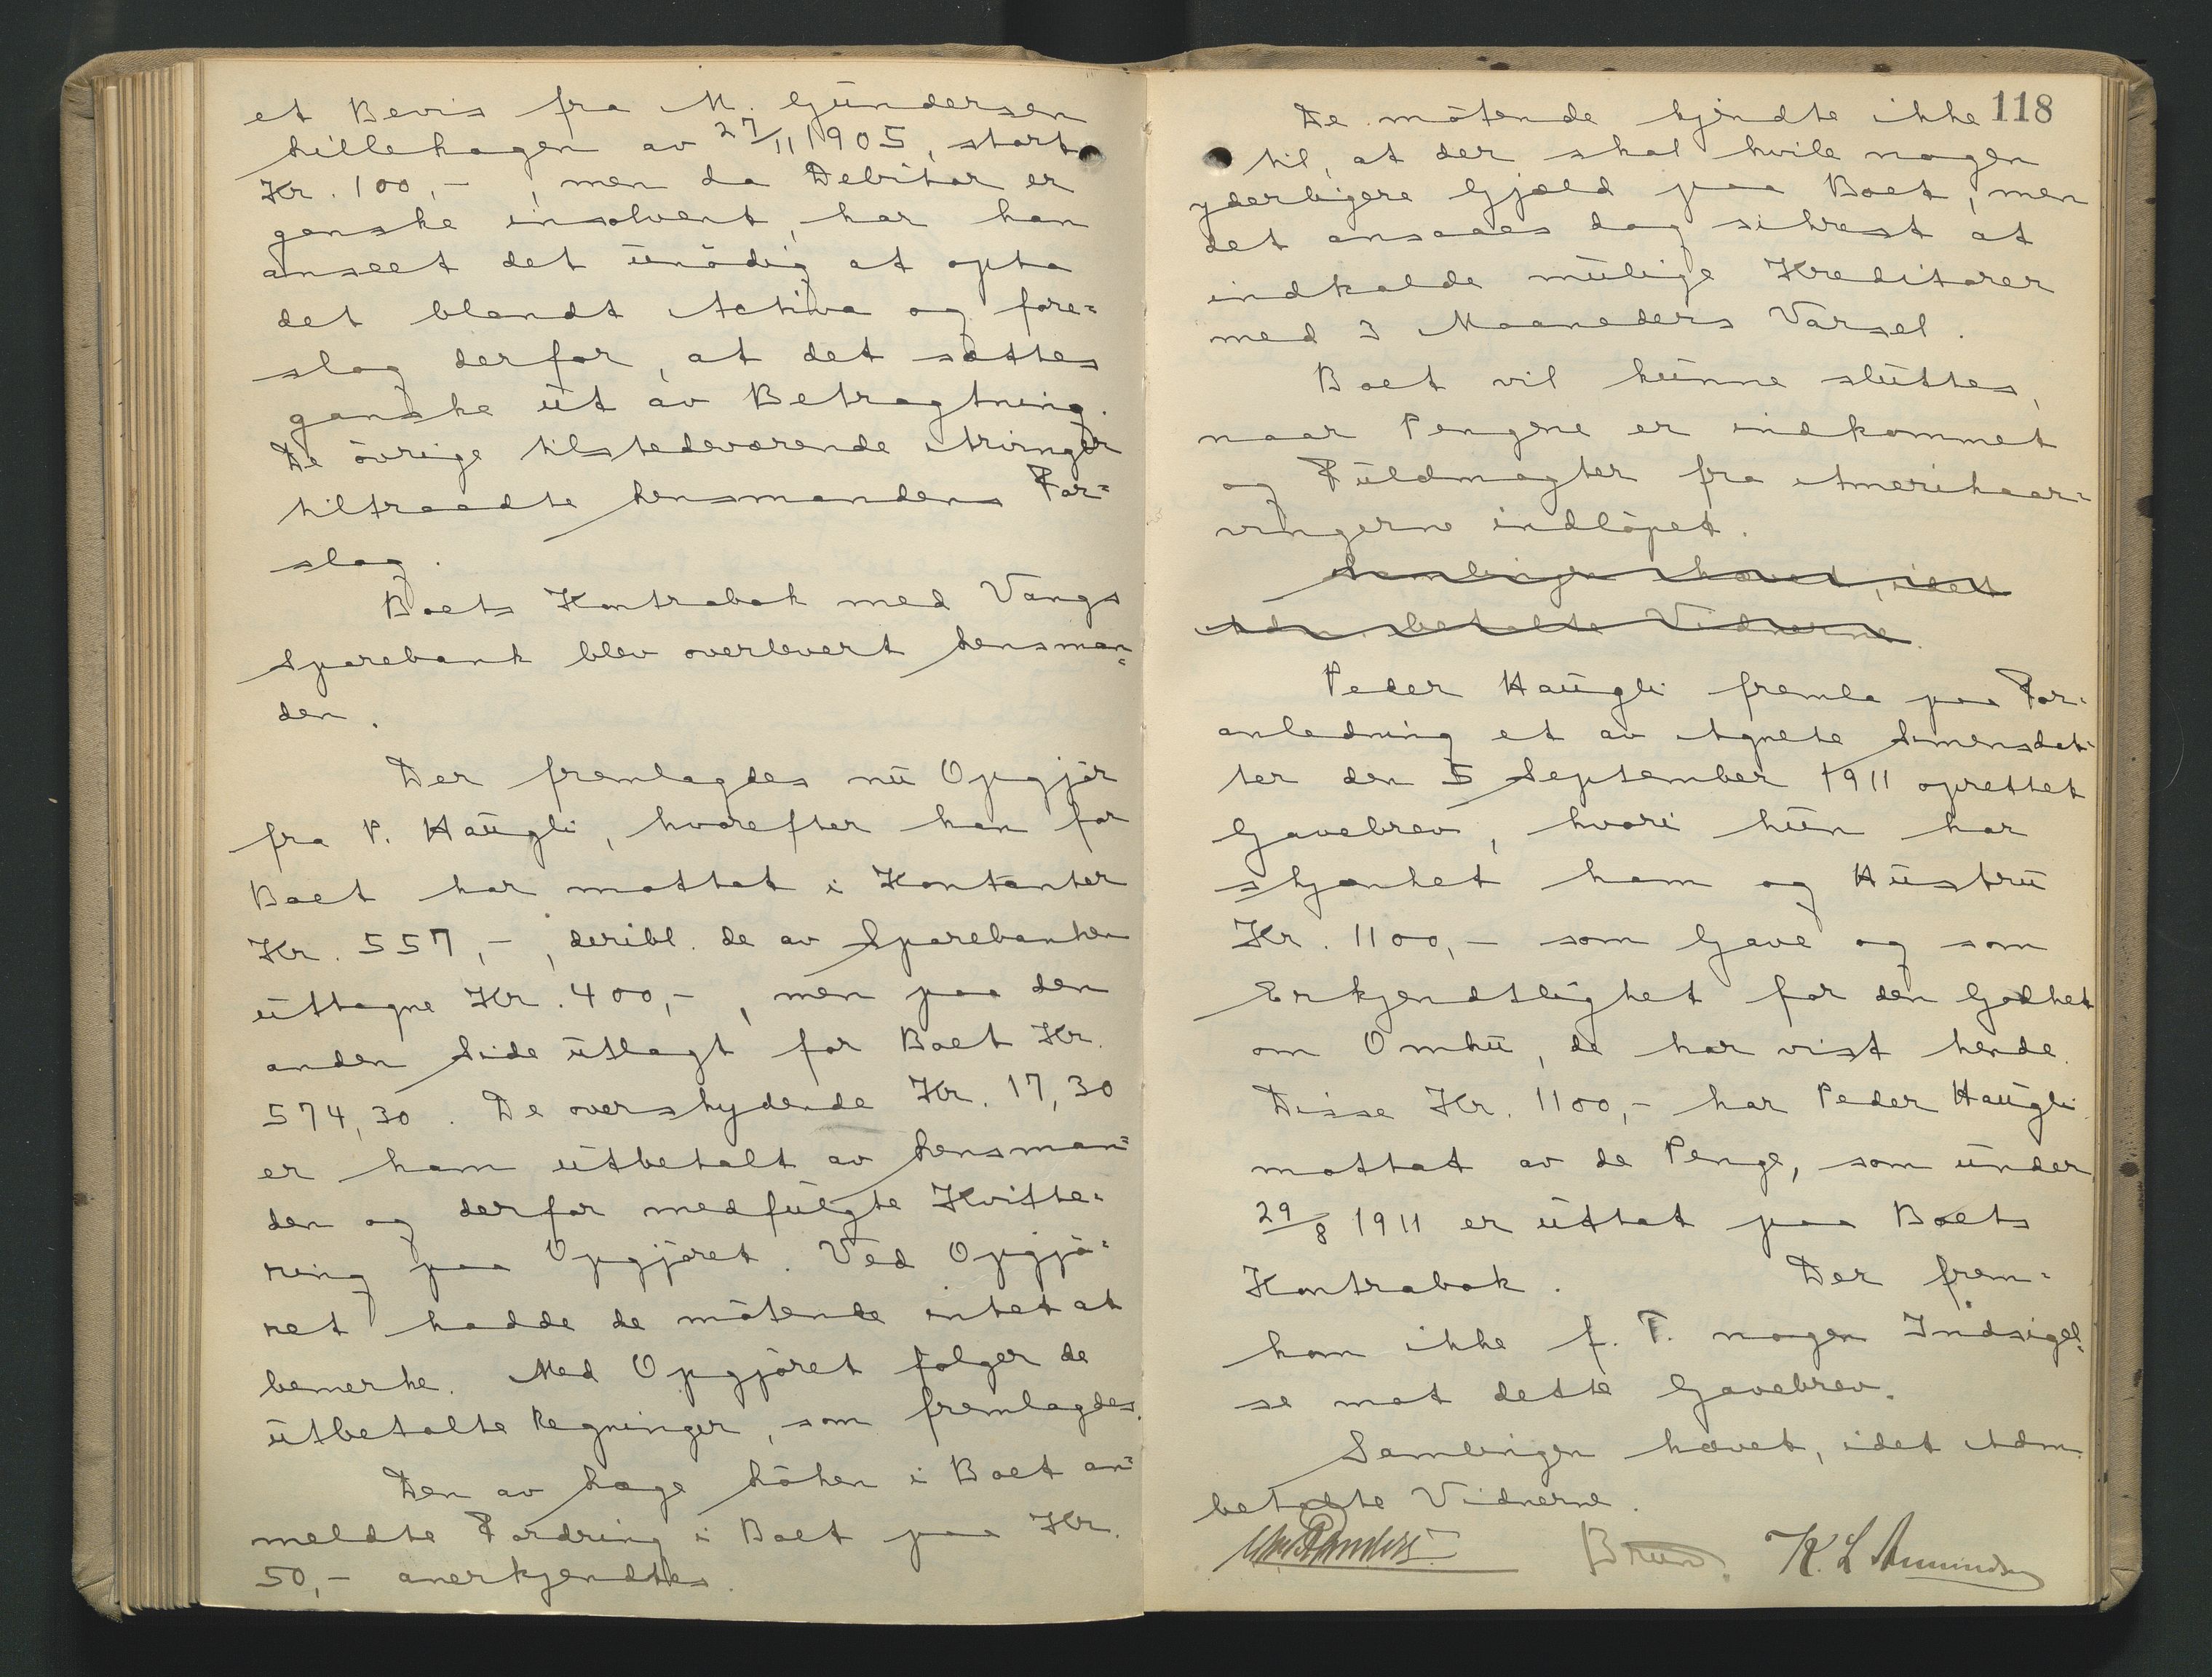 et Bevis fra M. Gundersen
Lillehagen av 27/11 1905, stort
Kr. 100,- , men da Debitor er
ganske insolvent, har han
anseet det unödig at opta
det blandt Activa og fore=
slog derfor, at det sættes
ganske ut av Betragtning.
De övrige tilstedeværende Arvinger
tiltraadte Lensmandens For=
slag.
Boets Kontrabok med Vangs
Sparebank blev overlevert Lensman=
den.
Der fremlagdes nu Opgjör
fra P. Haugli, hvorefter han for
Boet har mottat i Kontanter
Kr. 557,- , deribl. de av Sparebanken
uttagne Kr. 400,- , men paa den
anden Side utlagt for Boet Kr.
574,30. De overskydende Kr. 17,30
er ham utbetalt av Lensman=
den og derfor medfulgte Kvitte=
ring paa Opgjöret. Ved Opgjö=
ret hadde de mötende intet at
bemerke. Med Opgjöret fölger de
utbetalte Regninger, som fremlagdes.
Den av Læge Löken i Boet an=
meldte Fordring i Boet paa Kr.
50,- anerkjendtes.
118
De mötende kjendte ikke
til, at der skal hvile nogen
yderligere Gjæld paa Boet, men
det ansaaes dog sikrest at
indkalde mulige Kreditorer
med 3 Maaneders Varsel.
Boet vil kunne sluttes,
naar Pengene er indkommet
og Fuldmagter fra Amerikaar=
vingerne indlöpet.
Samlingen hævet, idet
Adm. betalte Vidnerne.
Peder Haugli fremla paa For=
anledning et av Agnete Simensdat=
ter den 5 September 1911 oprettet
Gavebrev, hvori hun har
skjænket ham og Hustru
Kr. 1100,- som Gave og som
Erkjendtlighet for den Godhet
om Omhu, de har vist hende.
Disse Kr. 1100,- har Peder Haugli
mottat av de Penge, som under
29/8 1911 er uttat paa Boets
Kontrabok. Der frem=
kom ikke f. T. nogen Indsigel=
se mot dette Gavebrev.
Samlingen hævet, idet Adm.
betalte Vidnerne.
Brun. K. L. Amundsen